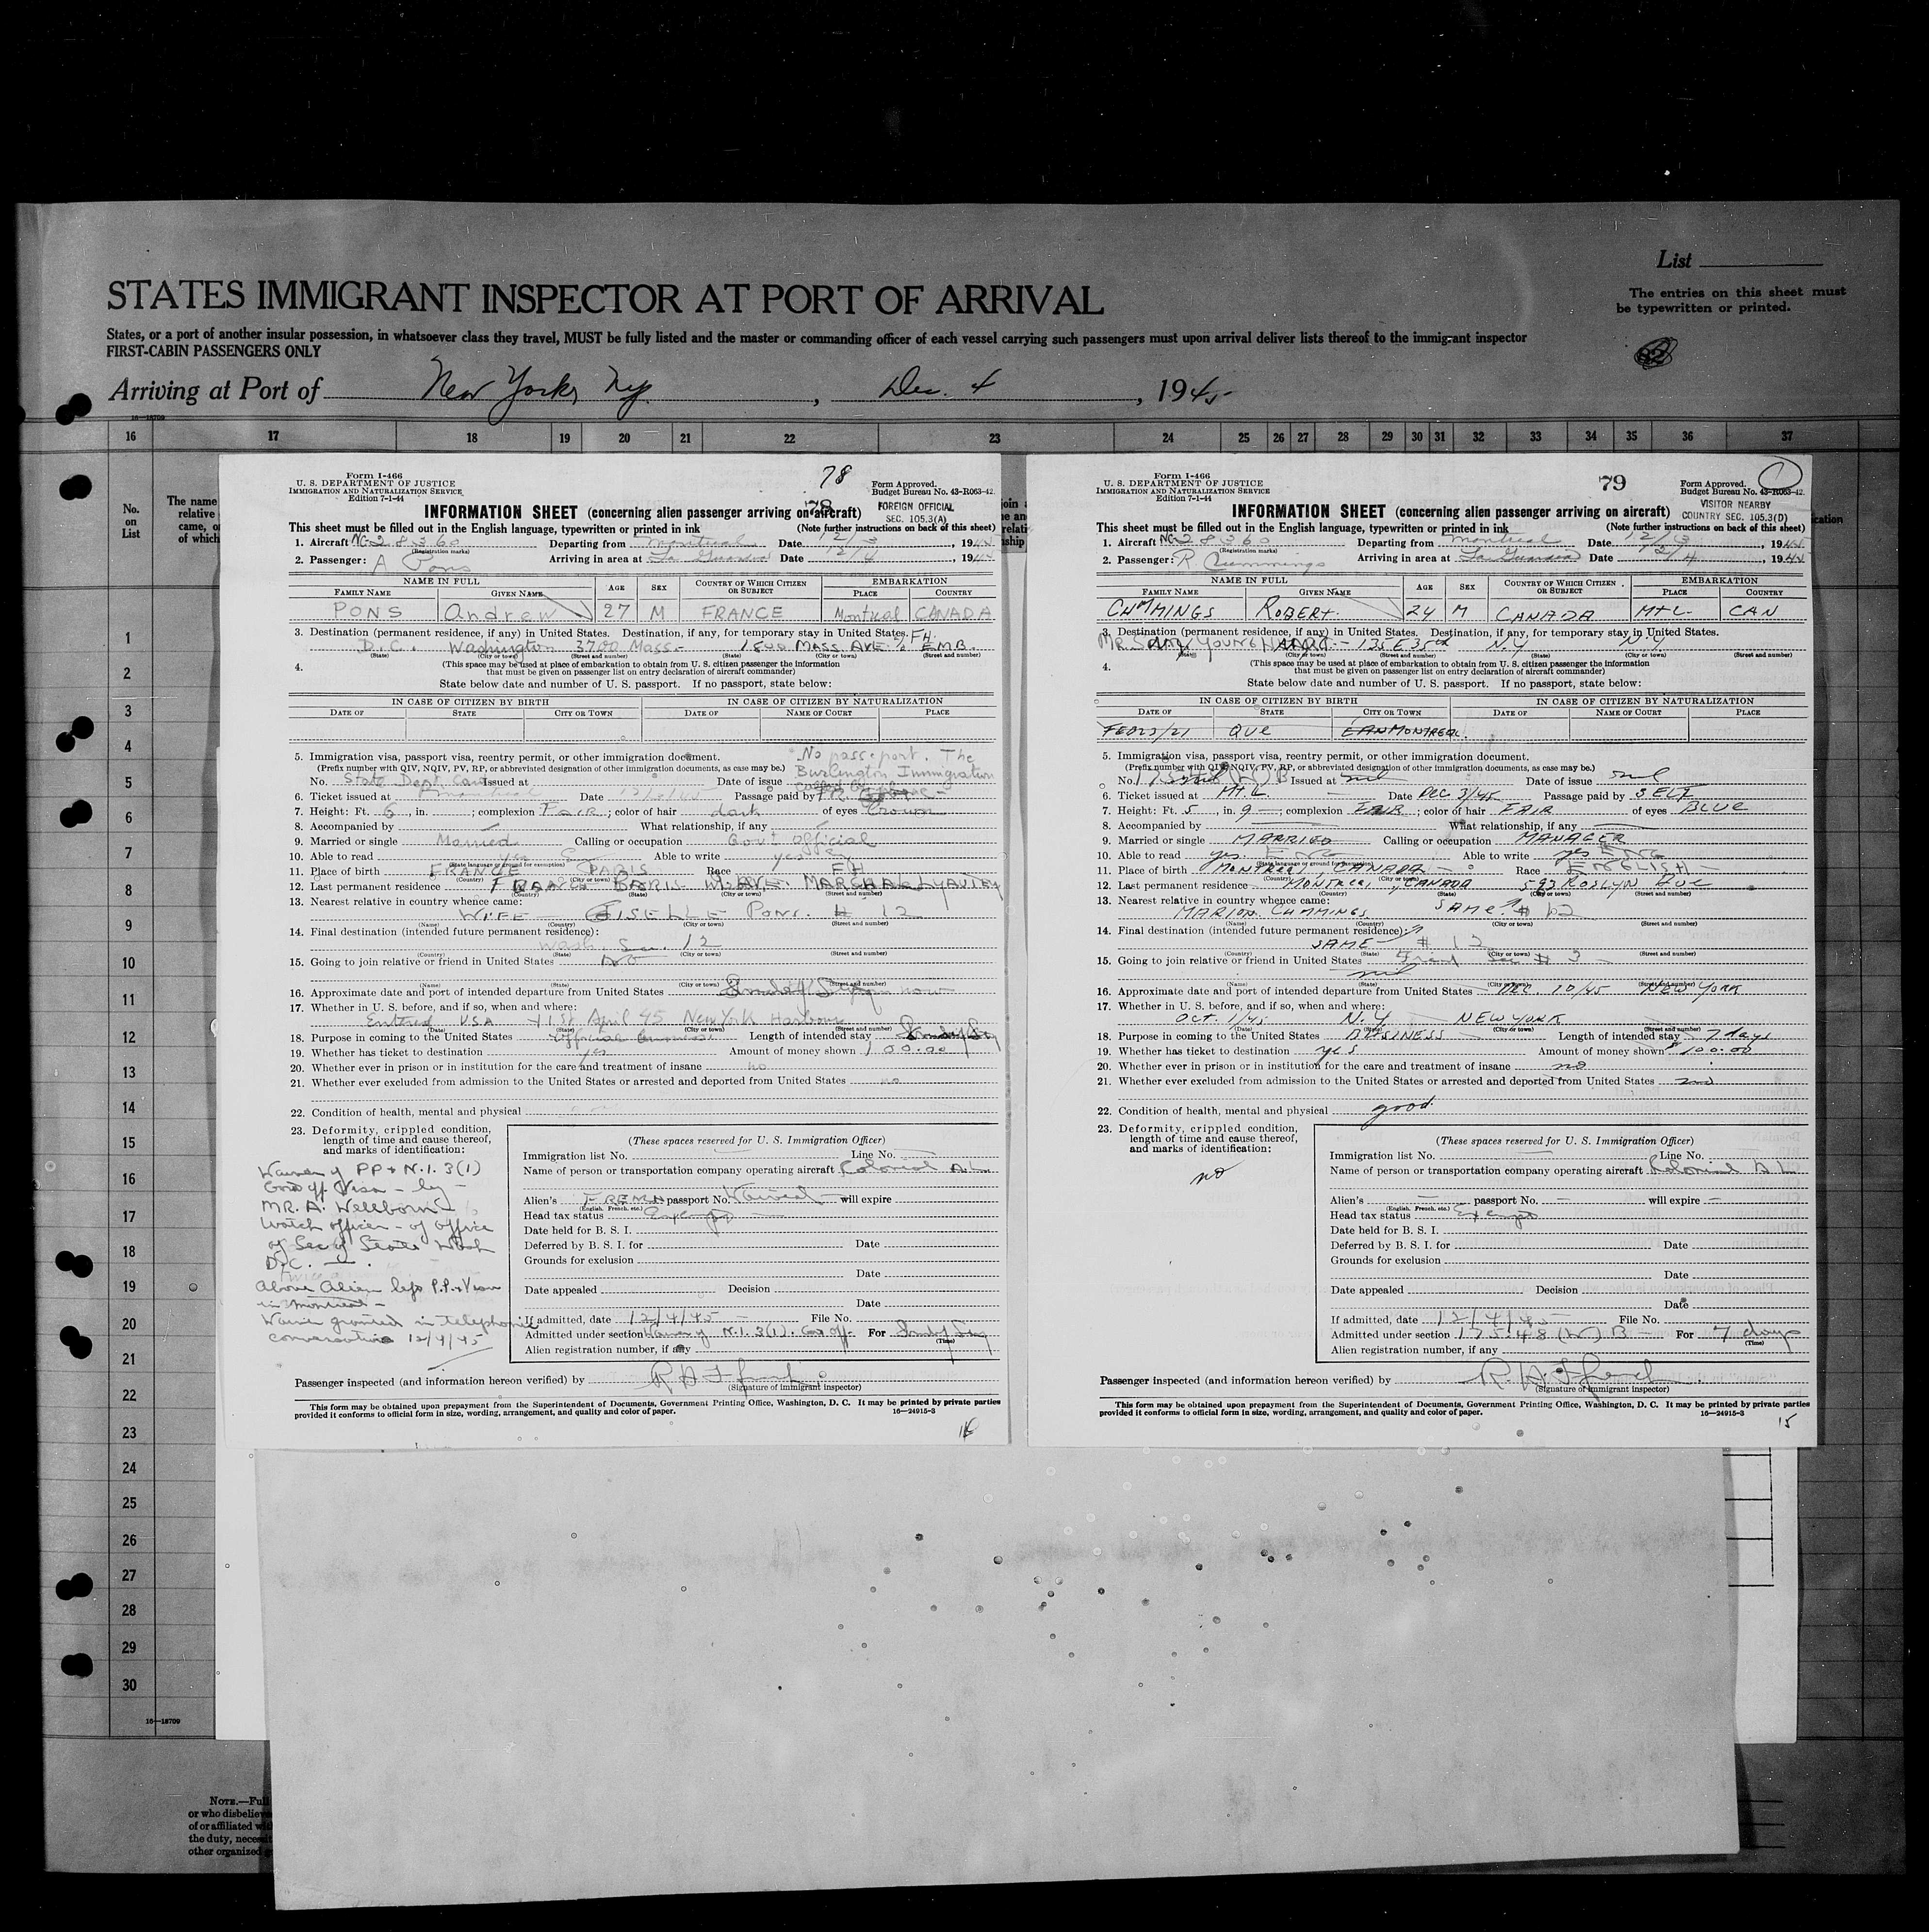 List
STATES IMMIGRANT INSPECTOR AT PORT OF ARRIVAL
The entries on this sheet must
be typewritten or printed.
States, or a port of another insular possession, in whatsoever class they travel, MUST be fully listed and the master or commanding officer of each vessel carrying such passengers must upon arrival deliver lists thereof to the immigrant inspector
FIRST-CABIN PASSENGERS ONLY
Arriving at Port of New York, N.Y. , Dec. 4 , 1945
16—18709
16 17 18 19 20 21 22 23 24 25 26 27 28 29 30 31 32 33 34 35 36 37
No.
on
List
The name
relative
came, o
of which
1
2
3
4
5
6
7
8
9
10
11
12
13
14
15
16
17
18
19
20
21
22
23
24
25
26
27
28
29
30
16—18709
NOTE.—Full
or who disbelieve
of or affiliated wit
the duty, necessit
other organized g
78
Form I-466
U. S. DEPARTMENT OF JUSTICE
IMMIGRATION AND NATURALIZATION SERVICE
Edition 7-1-44
Form Approved.
Budget Bureau No. 43-R063-42.
78
FOREIGN OFFICIAL
SEC. 105.3(A)
INFORMATION SHEET (concerning alien passenger arriving on aircraft)
This sheet must be filled out in the English language, typewritten or printed in ink (Note further instructions on back of this sheet)
1. Aircraft NC-28360 Departing from Montreal Date 12/3, 1945
(Registration marks)
2. Passenger: A Pons Arriving in area at La Guardia Date 12/4, 1945
NAME IN FULL AGE SEX COUNTRY OF WHICH CITIZEN OR SUBJECT EMBARKATION
FAMILY NAME GIVEN NAME PLACE COUNTRY
PONS Andrew 27 M FRANCE Montreal CANADA
3. Destination (permanent residence, if any) in United States. Destination, if any, for temporary stay in United States.
D.C. Washington 3700 Mass. 1800 MASS AVE % FH. EMB.
(State) (City or town) (Street and number) (State) (City or town) (Street and number)
4. (This space may be used at place of embarkation to obtain from U. S. citizen passenger the information
that must be given on passenger list on entry declaration of aircraft commander)
State below date and number of U. S. passport. If no passport, state below:
IN CASE OF CITIZEN BY BIRTH IN CASE OF CITIZEN BY NATURALIZATION
DATE OF STATE CITY OR TOWN DATE OF NAME OF COURT PLACE
5. Immigration visa, passport visa, reentry permit, or other immigration document.
No passeport. The
Burlington Immigration
(Prefix number with QIV, NQIV, PV, RP, or abbreviated designation of other immigration documents, as case may be.)
No. State Dept. Issued at Date of issue
6. Ticket issued at Date Passage paid by
7. Height: Ft. 6, in. ; complexion FAIR; color of hair dark of eyes Brown
8. Accompanied by What relationship, if any
9. Married or single Married Calling or occupation Gov't Official
10. Able to read yes Able to write yes
(State language or ground for exemption)
11. Place of birth FRANCE PARIS Race FH
(Country) (City or town)
12. Last permanent residence FRANCE PARIS AVE. MARCHAL LYAUTEY
(Country) (State) (City or town) (Street and number)
13. Nearest relative in country whence came:
WIFE — GISELLE PONS. # 12
(Name) (Country) (City or town) (Street and number)
14. Final destination (intended future permanent residence):
Wash. 12
(Country) (State) (City or town) (Street and number)
15. Going to join relative or friend in United States No
(Name) (State) (City or town) (Street and number)
16. Approximate date and port of intended departure from United States
17. Whether in U. S. before, and if so, when and where:
Entered USA 1st April 45 New York Harbour
(Date) (State) (City or town) (Street and number)
18. Purpose in coming to the United States Official business Length of intended stay
19. Whether has ticket to destination yes Amount of money shown 100.00
20. Whether ever in prison or in institution for the care and treatment of insane no
21. Whether ever excluded from admission to the United States or arrested and deported from United States no
22. Condition of health, mental and physical
23. Deformity, crippled condition,
length of time and cause thereof,
and marks of identification:
Waiver of PP & N.I. 3(1)
Gov off Visa — by
MR. A. Wellborn
Watch officer — of office
of Sec of State Wash
D.C.
Above Alien left P.P. & Visa
in Montreal —
Waiver granted in telephone
conversation 12/4/45
(These spaces reserved for U. S. Immigration Officer)
Immigration list No. Line No.
Name of person or transportation company operating aircraft Colonial A L
Alien's FRENCH passport No. Waived will expire
(English, French, etc.)
Head tax status Exempt
Date held for B. S. I.
Deferred by B. S. I. for Date
Grounds for exclusion
Date
Date appealed Decision
Date
If admitted, date 12/4/45 File No.
Admitted under section Waiver of N.I. 3(1). Gov off. For
(Time)
Alien registration number, if any
Passenger inspected (and information hereon verified) by R H French
(Signature of immigrant inspector)
This form may be obtained upon prepayment from the Superintendent of Documents, Government Printing Office, Washington, D. C. It may be printed by private parties
provided it conforms to official form in size, wording, arrangement, and quality and color of paper. 16—24915-3
Form I-466
U. S. DEPARTMENT OF JUSTICE
IMMIGRATION AND NATURALIZATION SERVICE
Edition 7-1-44
79
Form Approved.
Budget Bureau No. 43-R063-42.
VISITOR NEARBY
COUNTRY SEC. 105.3(D)
INFORMATION SHEET (concerning alien passenger arriving on aircraft)
This sheet must be filled out in the English language, typewritten or printed in ink (Note further instructions on back of this sheet)
1. Aircraft NC 28360 Departing from Montreal Date 12/3, 1945
(Registration marks)
2. Passenger: R Cummings Arriving in area at La Guardia Date 12/4, 1945
NAME IN FULL AGE SEX COUNTRY OF WHICH CITIZEN OR SUBJECT EMBARKATION
FAMILY NAME GIVEN NAME PLACE COUNTRY
CUMMINGS ROBERT. 24 M CANADA MTL CAN
3. Destination (permanent residence, if any) in United States. Destination, if any, for temporary stay in United States.
135 E 35 N.Y N.Y.
(State) (City or town) (Street and number) (State) (City or town) (Street and number)
4. (This space may be used at place of embarkation to obtain from U. S. citizen passenger the information
that must be given on passenger list on entry declaration of aircraft commander)
State below date and number of U. S. passport. If no passport, state below:
IN CASE OF CITIZEN BY BIRTH IN CASE OF CITIZEN BY NATURALIZATION
DATE OF STATE CITY OR TOWN DATE OF NAME OF COURT PLACE
FEB 23/21 QUE MONTREAL.
5. Immigration visa, passport visa, reentry permit, or other immigration document.
(Prefix number with QIV, NQIV, PV, RP, or abbreviated designation of other immigration documents, as case may be.)
No. 175.48 (W) B Issued at nil Date of issue nil
6. Ticket issued at MTL Date DEC 3/45 Passage paid by SELF
7. Height: Ft. 5, in. 9; complexion FAIR; color of hair FAIR of eyes BLUE
8. Accompanied by What relationship, if any
9. Married or single MARRIED Calling or occupation MANAGER
10. Able to read yes. ENG Able to write yes ENG
(State language or ground for exemption)
11. Place of birth MONTREAL, CANADA Race ENGLISH
(Country) (City or town)
12. Last permanent residence MONTREAL, CANADA 593 ROSLYN AVE
(Country) (State) (City or town) (Street and number)
13. Nearest relative in country whence came:
MARION CUMMINGS SAME. # 12
(Name) (Country) (City or town) (Street and number)
14. Final destination (intended future permanent residence):
SAME # 12
(Country) (State) (City or town) (Street and number)
15. Going to join relative or friend in United States Friend See # 3
nil
(Name) (State) (City or town) (Street and number)
16. Approximate date and port of intended departure from United States DEC. 10/45 NEW YORK
17. Whether in U. S. before, and if so, when and where:
OCT. 1/45 N.Y NEW YORK
(Date) (State) (City or town) (Street and number)
18. Purpose in coming to the United States BUSINESS Length of intended stay 7 days
19. Whether has ticket to destination yes Amount of money shown $100.00
20. Whether ever in prison or in institution for the care and treatment of insane no
21. Whether ever excluded from admission to the United States or arrested and deported from United States no
22. Condition of health, mental and physical good.
23. Deformity, crippled condition,
length of time and cause thereof,
and marks of identification:
no
(These spaces reserved for U. S. Immigration Officer)
Immigration list No. Line No.
Name of person or transportation company operating aircraft Colonial A L
Alien's passport No. will expire
(English, French, etc.)
Head tax status Exempt
Date held for B. S. I.
Deferred by B. S. I. for Date
Grounds for exclusion
Date
Date appealed Decision
Date
If admitted, date 12/4/45 File No.
Admitted under section 175.48 (W) B For 7 days
(Time)
Alien registration number, if any
Passenger inspected (and information hereon verified) by R. H. French
(Signature of immigrant inspector)
This form may be obtained upon prepayment from the Superintendent of Documents, Government Printing Office, Washington, D. C. It may be printed by private parties
provided it conforms to official form in size, wording, arrangement, and quality and color of paper. 16—24915-3
15